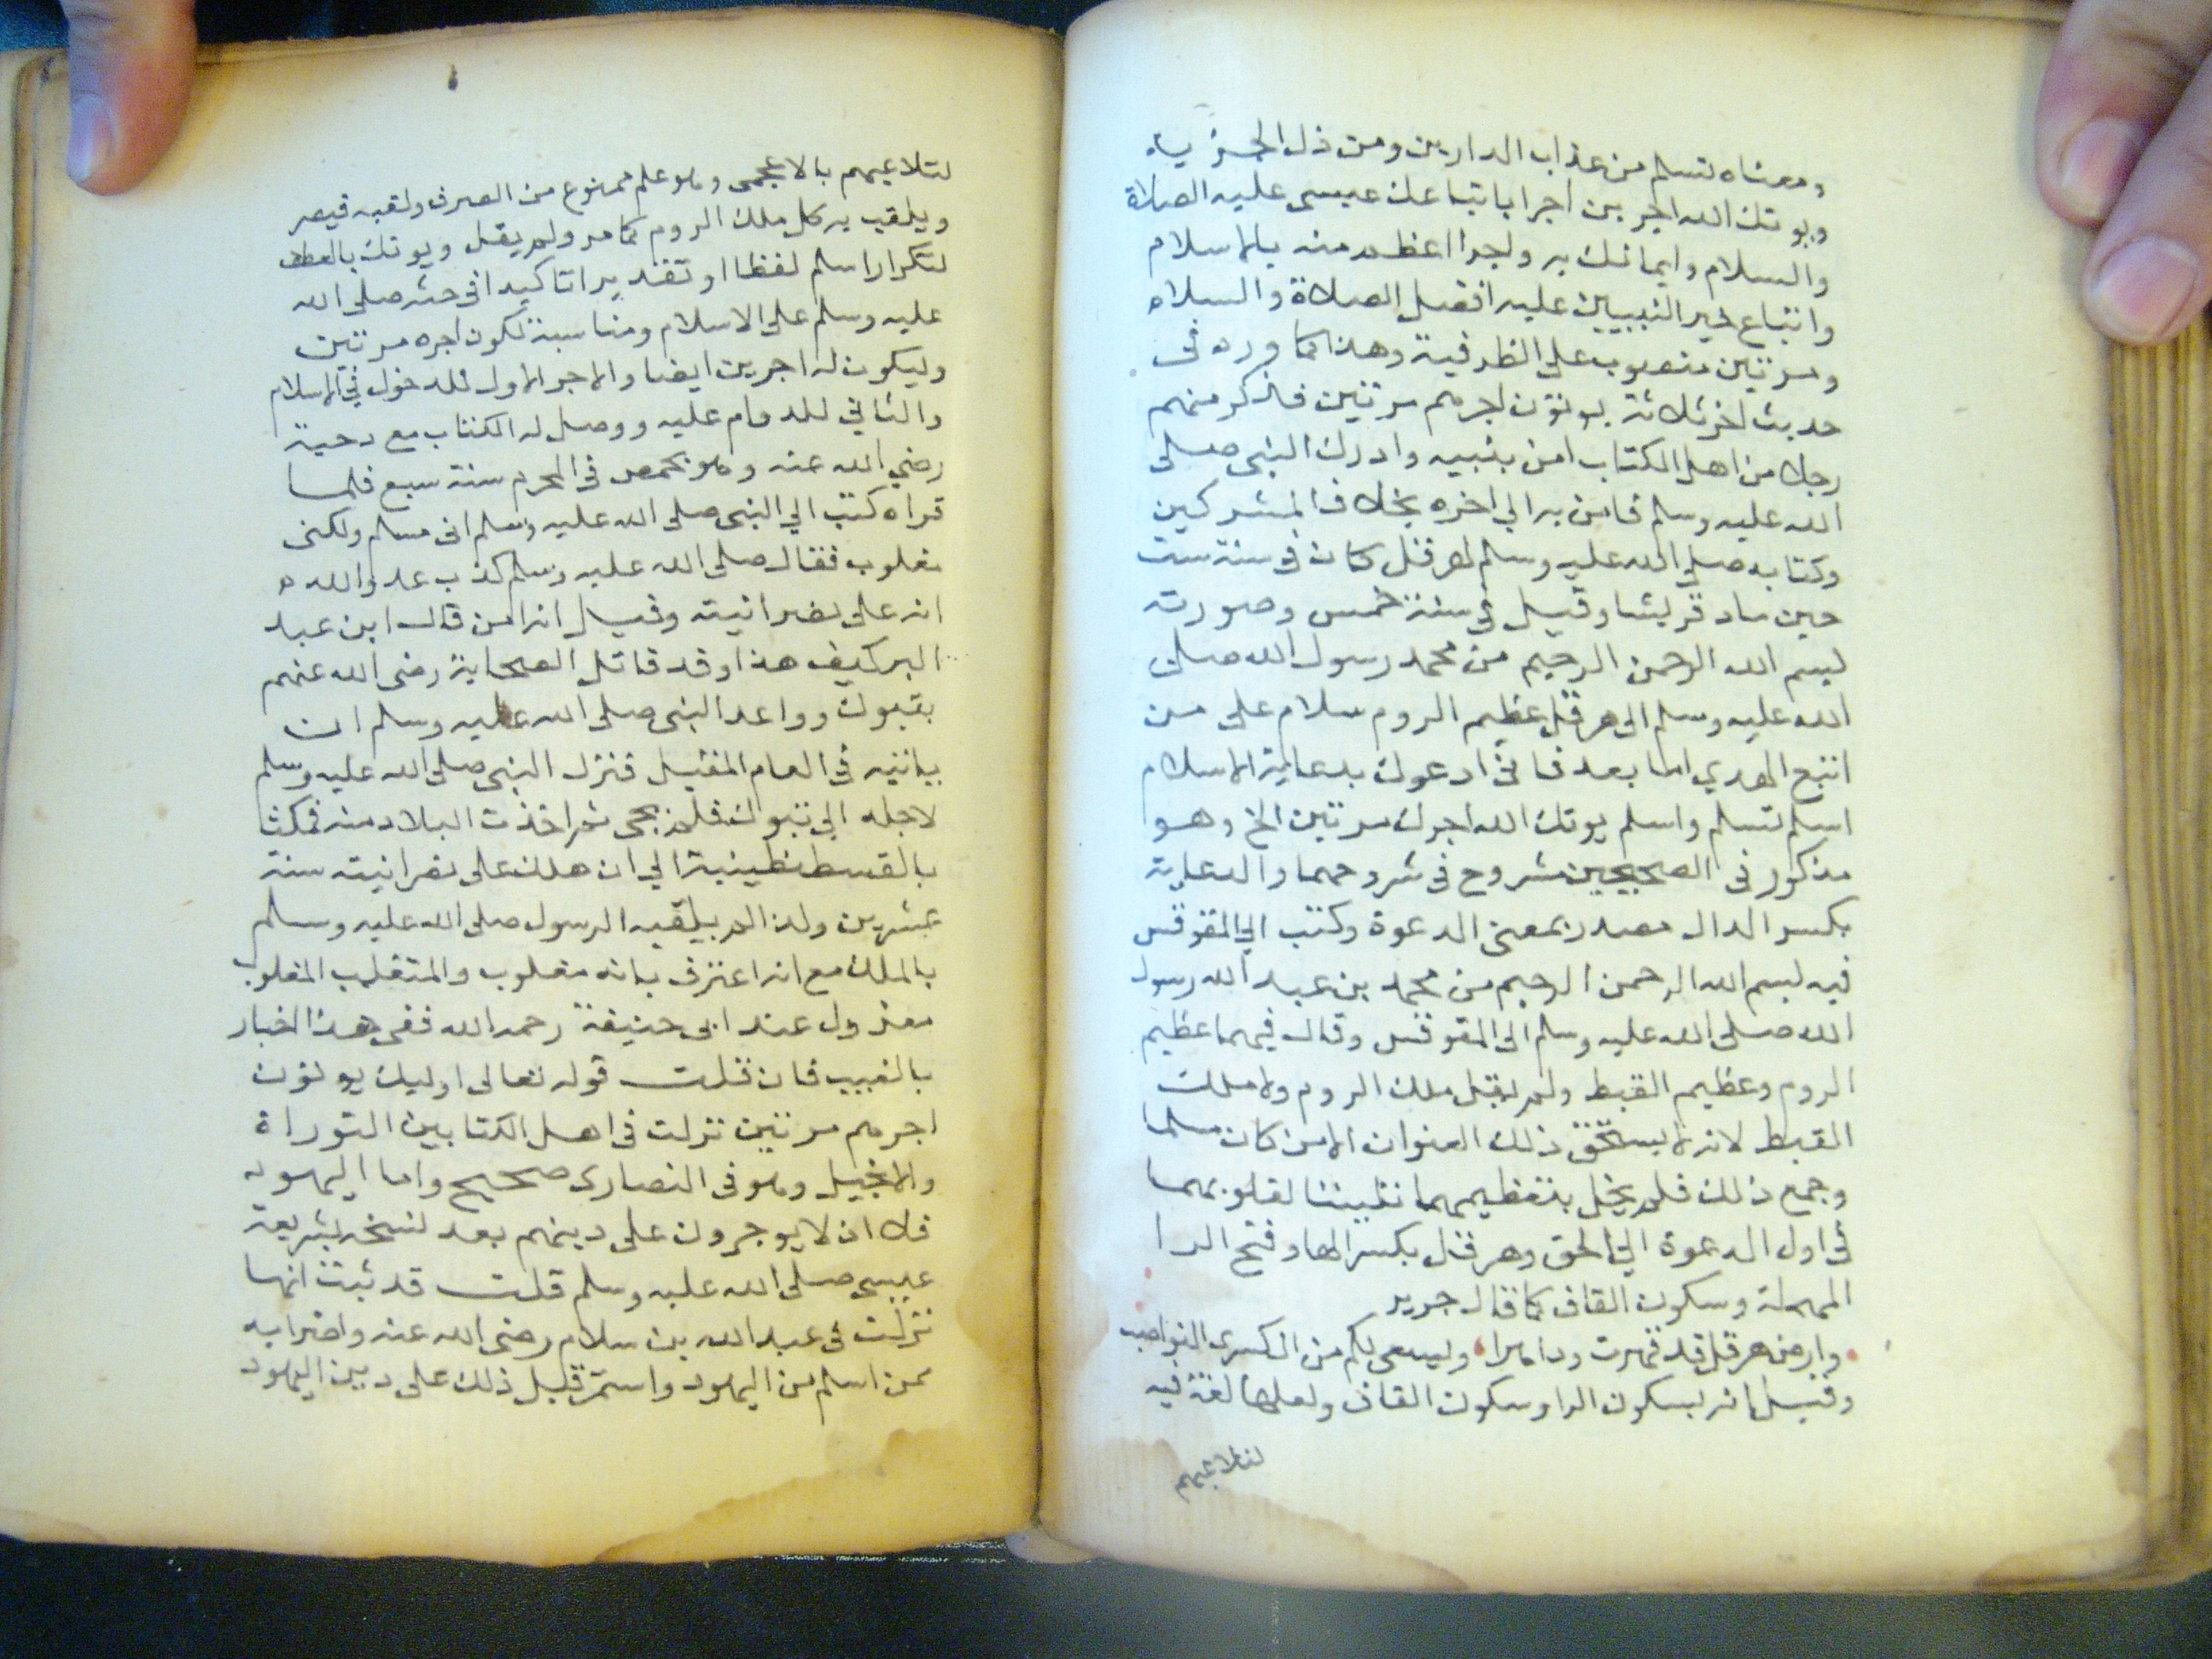 ومعناه تسلم من عذاب الدارين ومن ذل الجزية
ويوتك الله اجرين اجرا باتباعك عيسى عليه الصلاة
والسلام وايمانك به واجرا اعظم منه بالاسلام
واتباع خير النبيين عليه افضل الصلاة والسلام
ومرتين منصوب على الظرفية وهذا كما ورد فى
حديث اخر ثلاثة يوتون اجرهم مرتين فذكر منهم
رجل من اهل الكتاب امن بنبيه وادرك النبى صلى
الله عليه وسلم فامن به الي اخره بخلاف المشركين
وكتابه صلى الله عليه وسلم لهرقل كان فى سنة ست
حين ماد قريشا وقيل فى سنة خمس وصورته
بسم الله الرحمن الرحيم من محمد رسول الله صلى
الله عليه وسلم الى هرقل عظيم الروم سلام على من
اتبع الهدي اما بعد فانى ادعوك بدعاية الاسلام
اسلم تسلم واسلم يوتك الله اجرك مرتين الخ وهو
مذكور فى الصحيحين مشروح فى شروحهما والدعاية
بكسر الدال مصدر بمعنى الدعوة وكتب الي المقوقس
فيه بسم الله الرحمن الرحيم من محمد بن عبد الله رسول
الله صلى الله عليه وسلم الى المقوقس وقال فيهما عظيم
الروم وعظيم القبط ولم يقل ملك الروم ولا ملك
القبط لانه لا يستحق ذلك العنوان الا من كان مسلما
وجمع ذلك فلم يخل بتعظيمهما تليينا لقلوبهما
فى اول الدعوة الي الحق وهرقل بكسر الها وفتح الرا
المهملة وسكون القاف كما قال جرير
وارض هرقل قد قهرت وداهرا ويسعى لكم من ال كسرى النواصب
وقيل انه بسكون الرا وسكون القاف ولعلها لغة فيه
لتلاعبهم
لتلاعبهم بالاعجمى وهو علم ممنوع من الصرف ولقبه قيصر
ويلقب به كل ملك الروم كما مر ولم يقل ويوتك بالعطف
لتكرار اسلم لفظا او تقديرا تاكيدا فى حثه صلى الله
عليه وسلم على الاسلام ومناسبة لكون اجره مرتين
وليكون له اجرين ايضا والاجر الاول للدخول في الاسلام
والثاني للدوام عليه ووصل له الكتاب مع دحية
رضي الله عنه وهو بحمص فى المحرم سنة سبع فلما
قراه كتب الي النبى صلى الله عليه وسلم انى مسلم ولكنى
مغلوب فقال صلى الله عليه وسلم كذب عدو الله
انه على نصرانيته وقيل انه امن قال ابن عبد
البر كيف هذا وقد قاتل الصحابة رضى الله عنهم
بتبوك وواعد النبى صلى الله عليه وسلم ان
ياتيه فى العام المقبل فنزل النبى صلى الله عليه وسلم
لاجله الي تبوك فلم يجى ثم اخذت البلاد منه فمكث
بالقسطنطينية الي ان هلك على نصرانيته سنة
عشرين ولذا لم يلقبه الرسول صلى الله عليه وسلم
بالملك مع انه اعترف بانه مغلوب والمتغلب المغلوب
معزول عند ابى حنيفة رحمه الله ففى هذا اخبار
بالغيب فان قلت قوله تعالى اوليك يوتون
اجرهم مرتين نزلت فى اهل الكتابين التوراة
والانجيل وهو فى النصارى صحيح واما اليهود
فلا اذ لا يوجرون على دينهم بعد نسخه بشريعة
عيسى صلى الله عليه وسلم قلت قد ثبت انها
نزلت فى عبد الله بن سلام رضى الله عنه واضرابه
ممن اسلم من اليهود واستمر قبل ذلك على دين اليهود